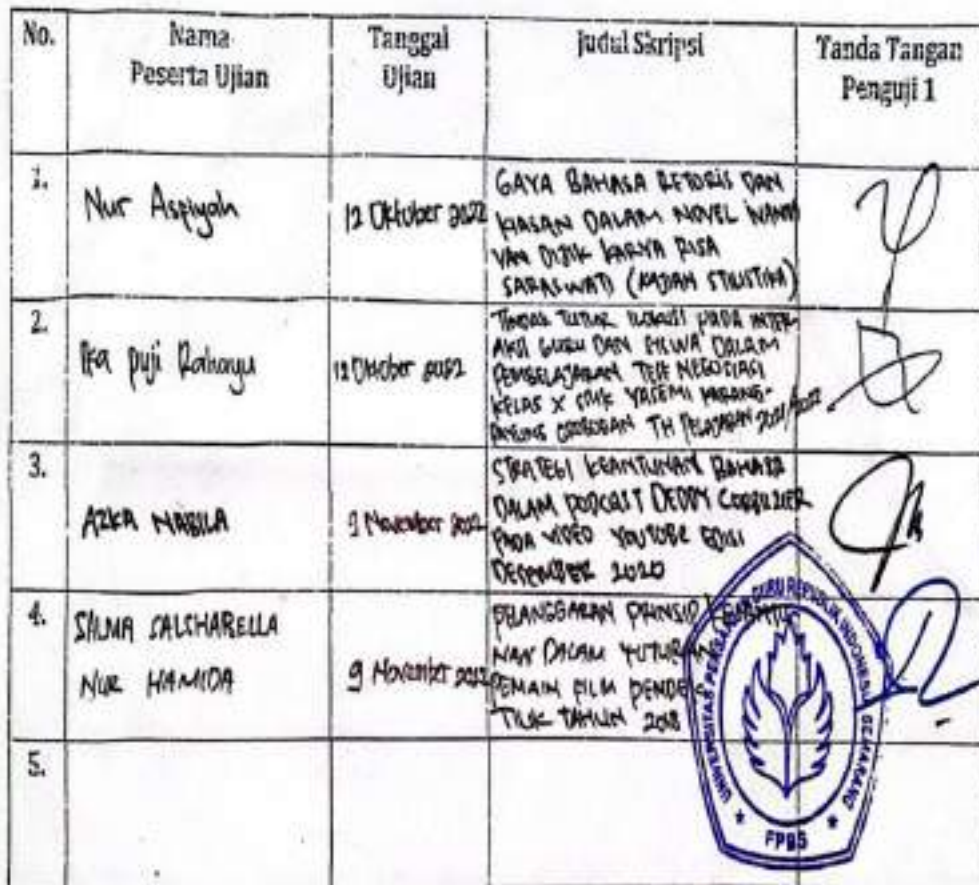 No.
Nama
Peserta Ujian
Tanggal
Ujian
Judul Skripsi
Tanda Tangan
Penguji 1
1.
Nur Aspiyah
12 Oktober 2022
GAYA BAHASA RETORIS DAN
KIASAN DALAM NOVEL IVANNA
VAN DIJK KARYA RISA
SARASWATI (KAJIAN STILISTIKA)
2.
Puji Rahayu
12 Oktober 2022
TINDAK TUTUR ILOKUSI PADA INTER-
AKSI GURU DAN SISWA DALAM
PEMBELAJARAN TEKS NEGOSIASI
KELAS X SMK YASEMI KARANG-
RAYUNG GROBOGAN TH PELAJARAN 2021/2022
3.
AZKA NABILA
9 November 2022
STRATEGI KESANTUNAN BAHASA
DALAM PODCAST DEDDY CORBUZIER
PADA VIDEO YOUTUBE EDISI
DESEMBER 2020
4.
SALSHABELLA
NUR HAMIDA
9 November 2022
PELANGGARAN PRINSIP
NAN DALAM TUTURAN
PEMAIN FILM PENDEK
TILIK TAHUN 2018
5.
UNIVERSITAS PERSATUAN GURU REPUBLIK INDONESIA SEMARANG
FPBS